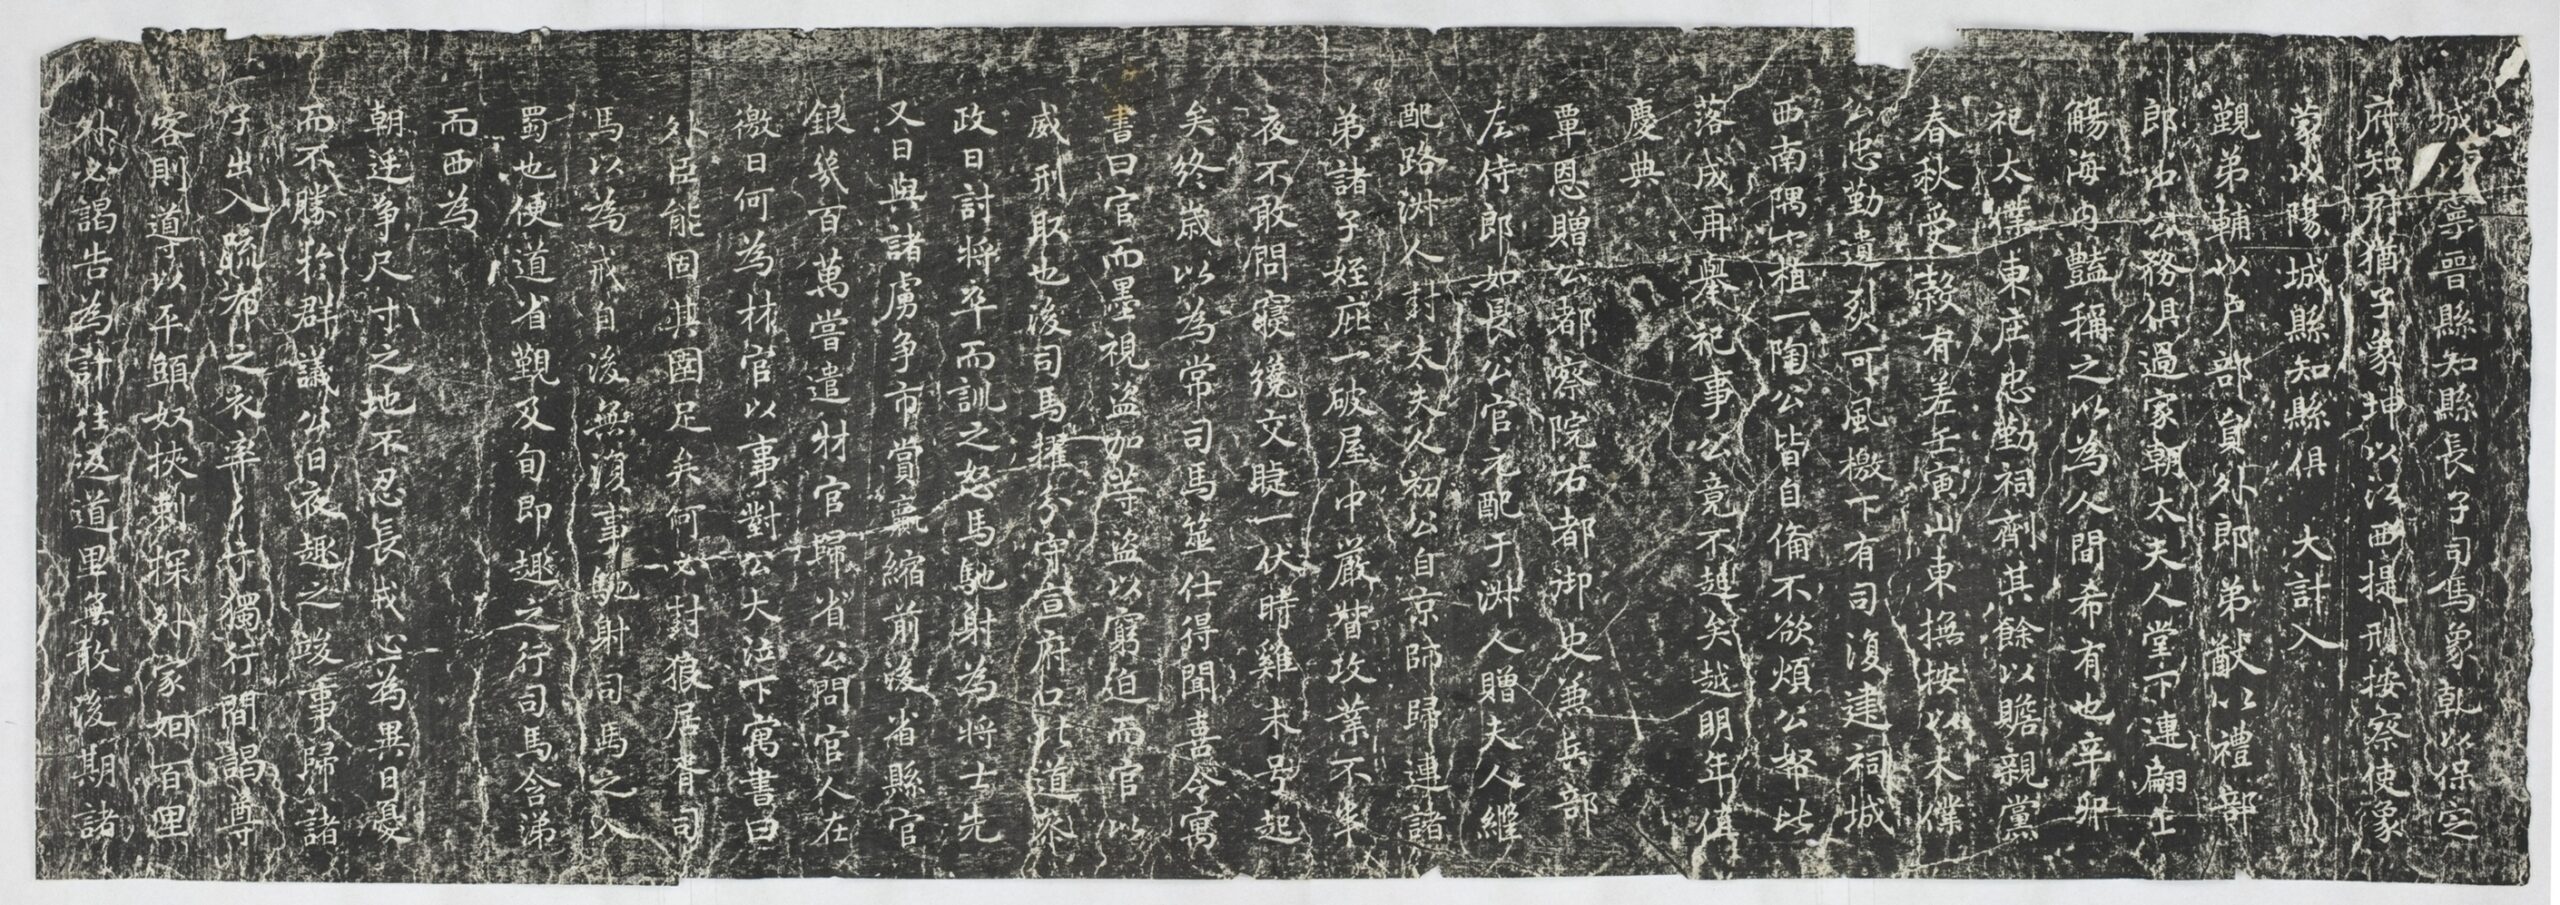 城以寧晉縣知縣長子司馬象乾以保定
府知府猶子象坤以江西提刑按察使象
蒙以陽城縣知縣俱　大計入
覲弟輔以户部員外郎弟猷以禮部
郎中公務俱過家朝太夫人堂下連翩上
觴海内豔稱之以為人間希有也辛卯
祀太僕東庄忠勤祠劑其餘以贍親黨
春秋受穀有差壬寅山東撫按以本僕
公忠勤遺烈可風檄下有司復建祠城
西南隅一植一陶公皆自僃不欲煩公帑比
落成再舉祀事公竟不起矣越明年值
慶典
覃恩贈公都察院右都御史兼兵部
左侍郎如長公官元配于淑人贈夫人繼
配路淑人封太夫人初公自京師歸連諸
弟諸子姪庇一破屋中嚴督攻業不丰
夜不敢問寢纔交睫一伏時雞未号起
矣終歲以為常司馬筮仕得聞喜令寓
書曰官而墨視盜加等盜以窮迫而官以
威刑取也後司馬擢分守宣府口北道叅
政日討將卒而訓之怒馬馳射為將士先
又日與諸虜争市賞羸縮前後省縣官
銀幾百萬嘗遣材官歸省公問官人在
徼日何為材官以事對公大泣下寓書曰
外臣能固其圉足矣何必封狼居胥司
馬以為戒自後無復事馳射司馬之入
蜀也便道省覲及旬即趣之行司馬含涕
而西為
朝廷争尺寸之地不忍長戎心為異日憂
而不勝於群議公日夜趣之竣事歸諸
子出入疏布之衣率〻步獨行間謁尊
客則導以平頭奴挾刺探外家㢠百里
外必謁告為計往返道里無敢後期諸